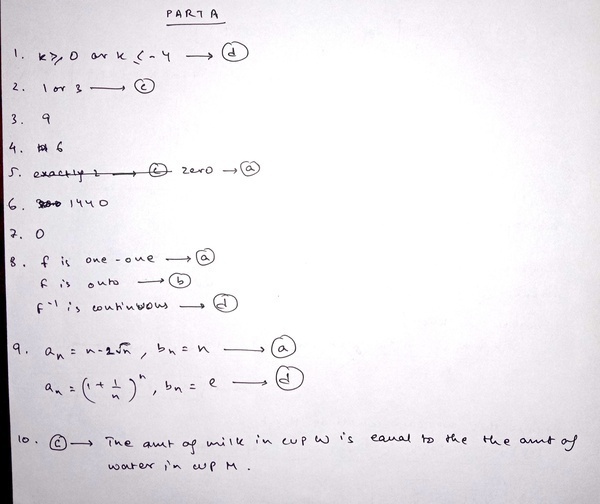 PART A
1. k ≥ 0 or k ≤ -4 → (d)
2. 1 or 3 → (c)
3. 9
4. 6
5. exactly 2 → (c) zero → (a)
6. 1440
7. 0
8. f is one-one → (a)
f is onto → (b)
f⁻¹ is continuous → (d)
9. aₙ = n-2√n, bₙ = n → (a)
aₙ = (1 + 1/n)ⁿ, bₙ = e → (d)
10. (c) → The amt of milk in cup W is equal to the the amt of
water in cup M.